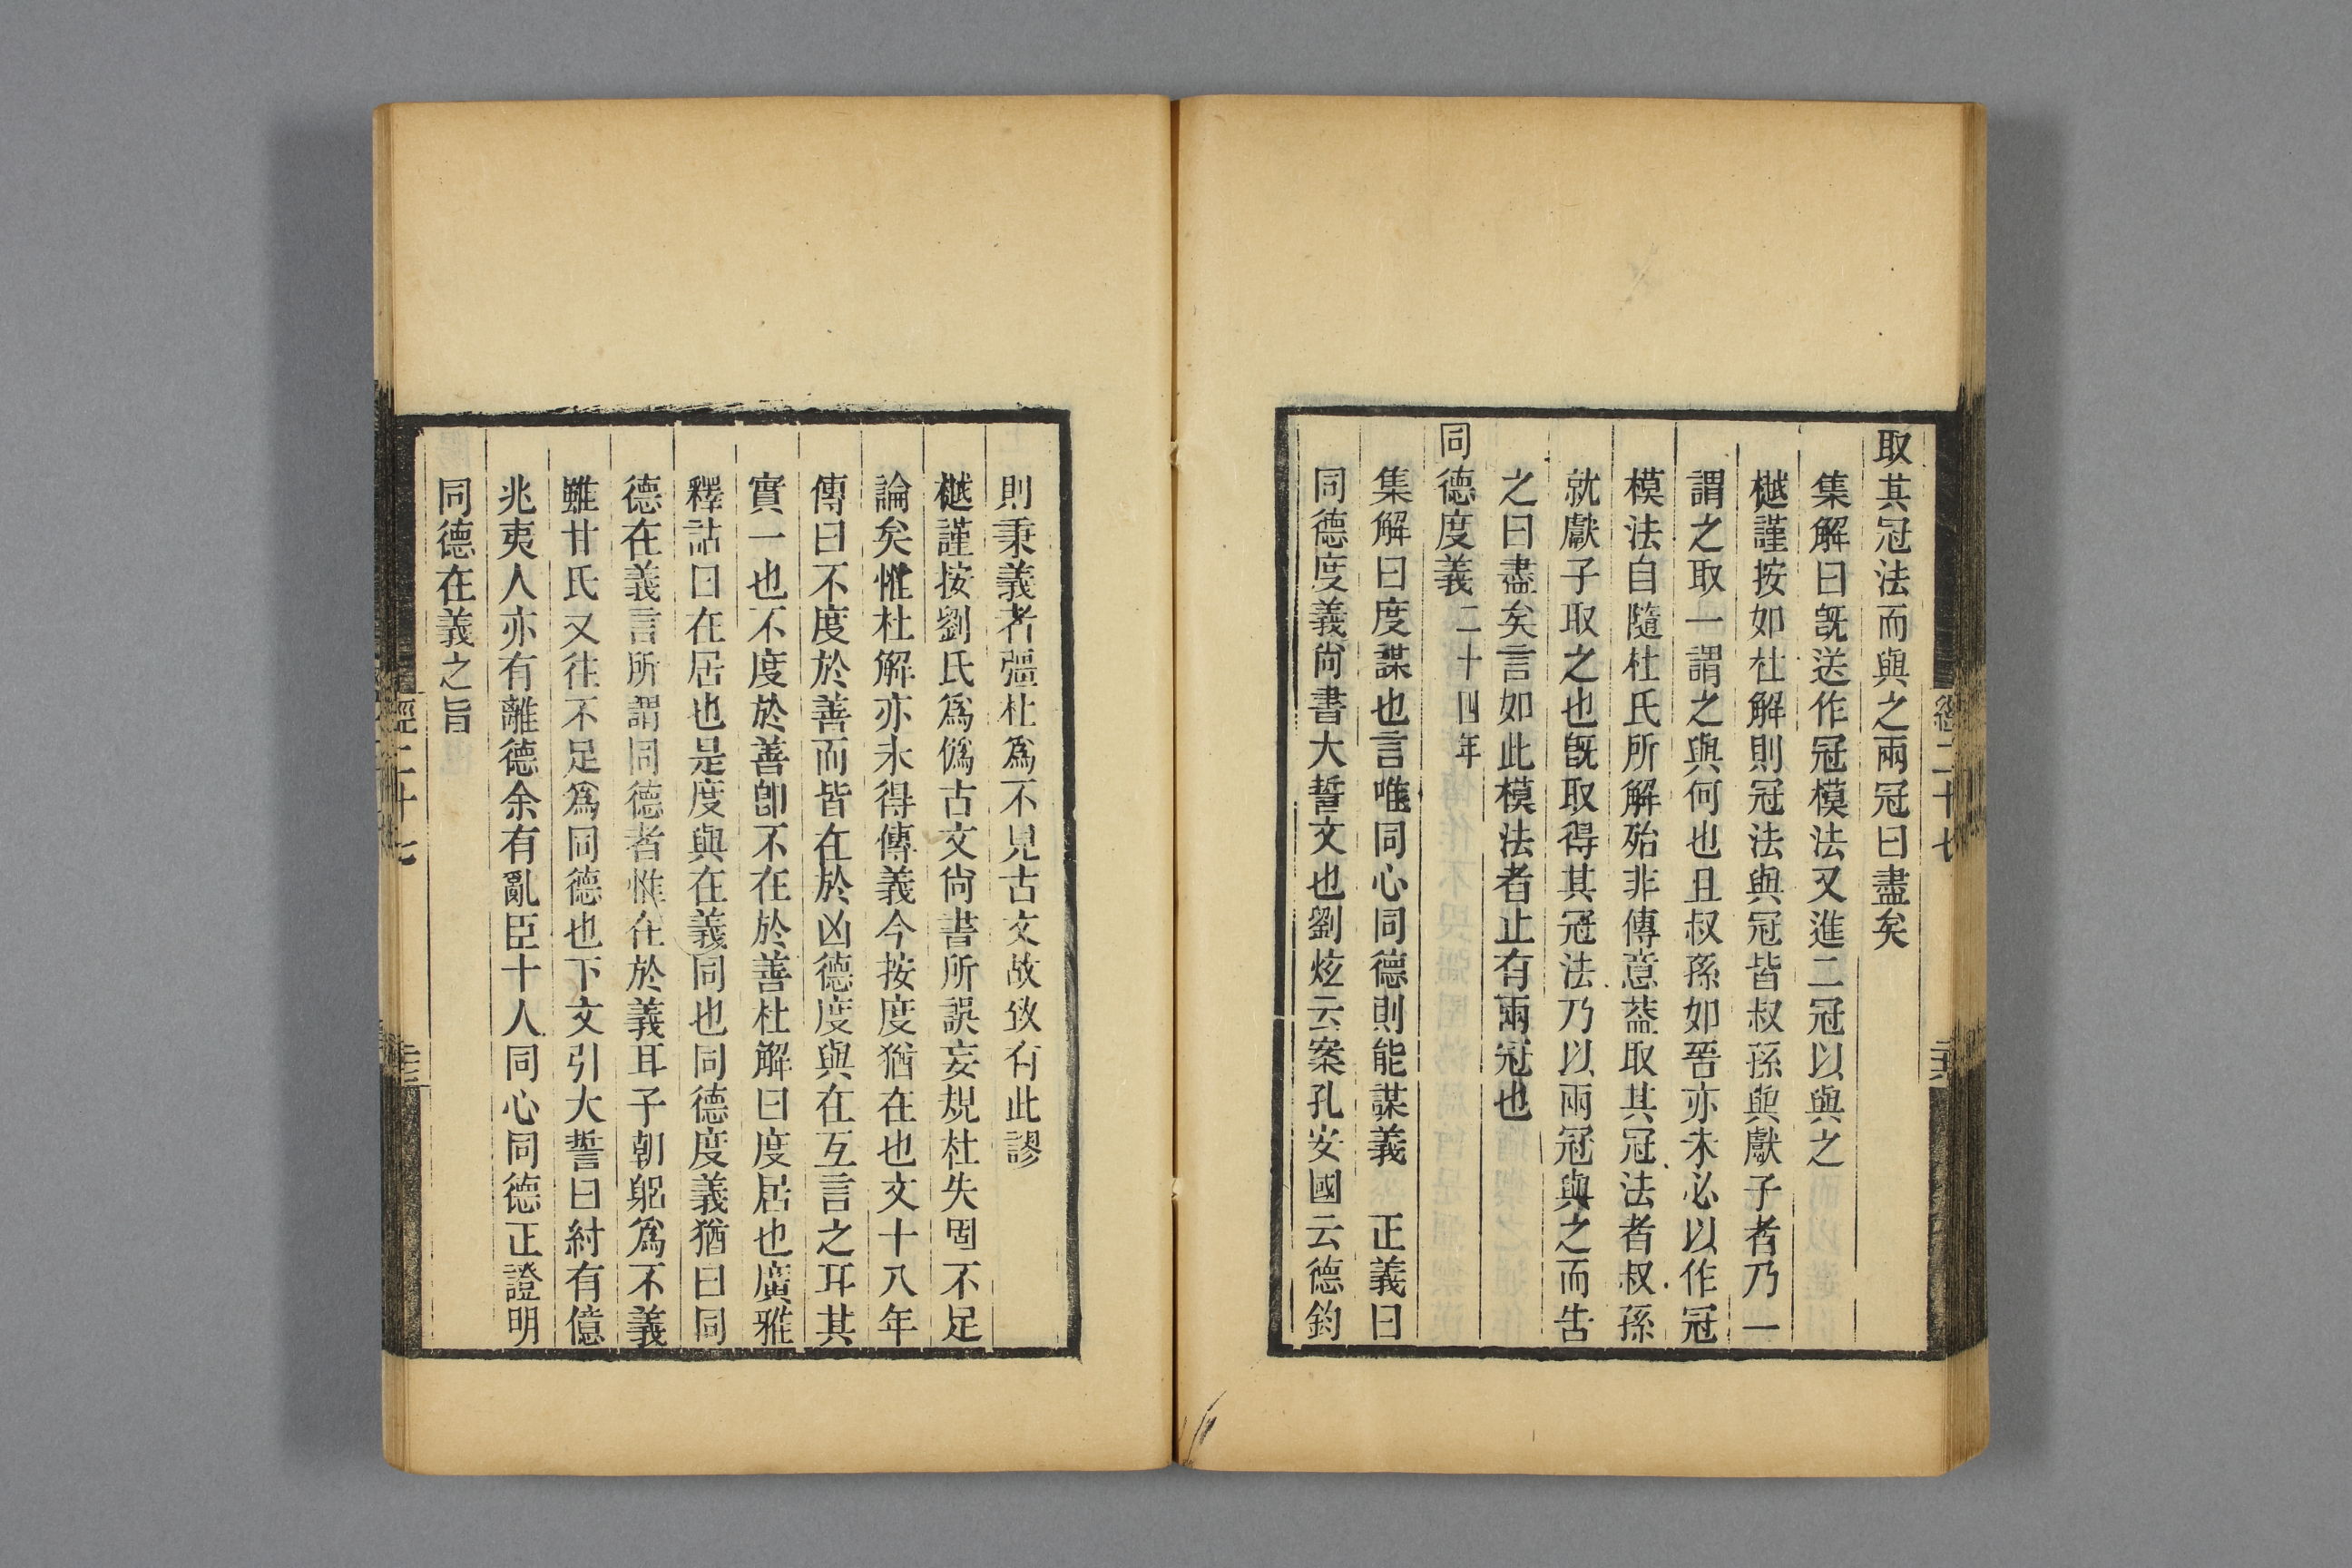 取其冠法而與之兩冠曰盡矣
集解曰旣送作冠模法又進二冠以與之
樾謹按如杜解則冠法與冠皆叔孫與獻子者乃一
謂之取一謂之與何也且叔孫如晉亦未必以作冠
模法自隨杜氏所解殆非傳意葢取其冠法者叔孫
就獻子取之也旣取得其冠法乃以兩冠與之而吿
之曰盡矣言如此模法者止有兩冠也
同德度義二十四年
集解曰度謀也言唯同心同德則能謀義　正義曰
同德度義尙書大誓文也劉炫云案孔安國云德鈞
則秉義者彊杜爲不見古文故致有此謬
樾謹按劉氏爲僞古文尙書所誤妄規杜失固不足
論矣惟杜解亦未得傳義今按度猶在也文十八年
傳曰不度於善而皆在於凶德度與在互言之耳其
實一也不度於善卽不在於善杜解曰度居也廣雅
釋詁曰在居也是度與在義同也同德度義猶曰同
德在義言所謂同德者惟在於義耳子朝躬爲不義
雖甘氏又往不足爲同德也下文引大誓曰紂有億
兆夷人亦有離德余有亂臣十人同心同德正證明
同德在義之旨
經二十七